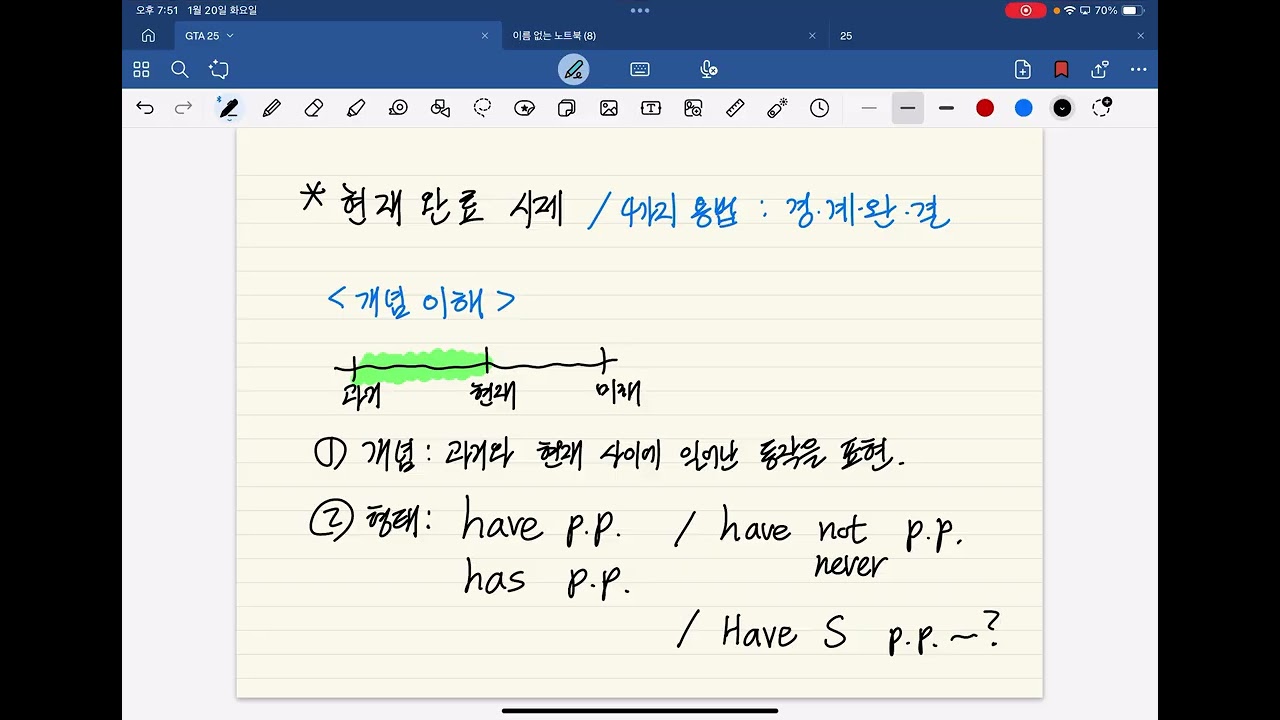 오후 7:51 1월 20일 화요일
70%
GTA 25
이름 없는 노트북 (8)
25
* 현재 완료 시제 / 4가지 용법 : 경·계·완·결
<개념 이해>
과거 현재 미래
① 개념 : 과거와 현재 사이에 일어난 동작을 표현.
② 형태 : have p.p. / have not p.p.
never
has p.p.
/ Have S p.p. ~?